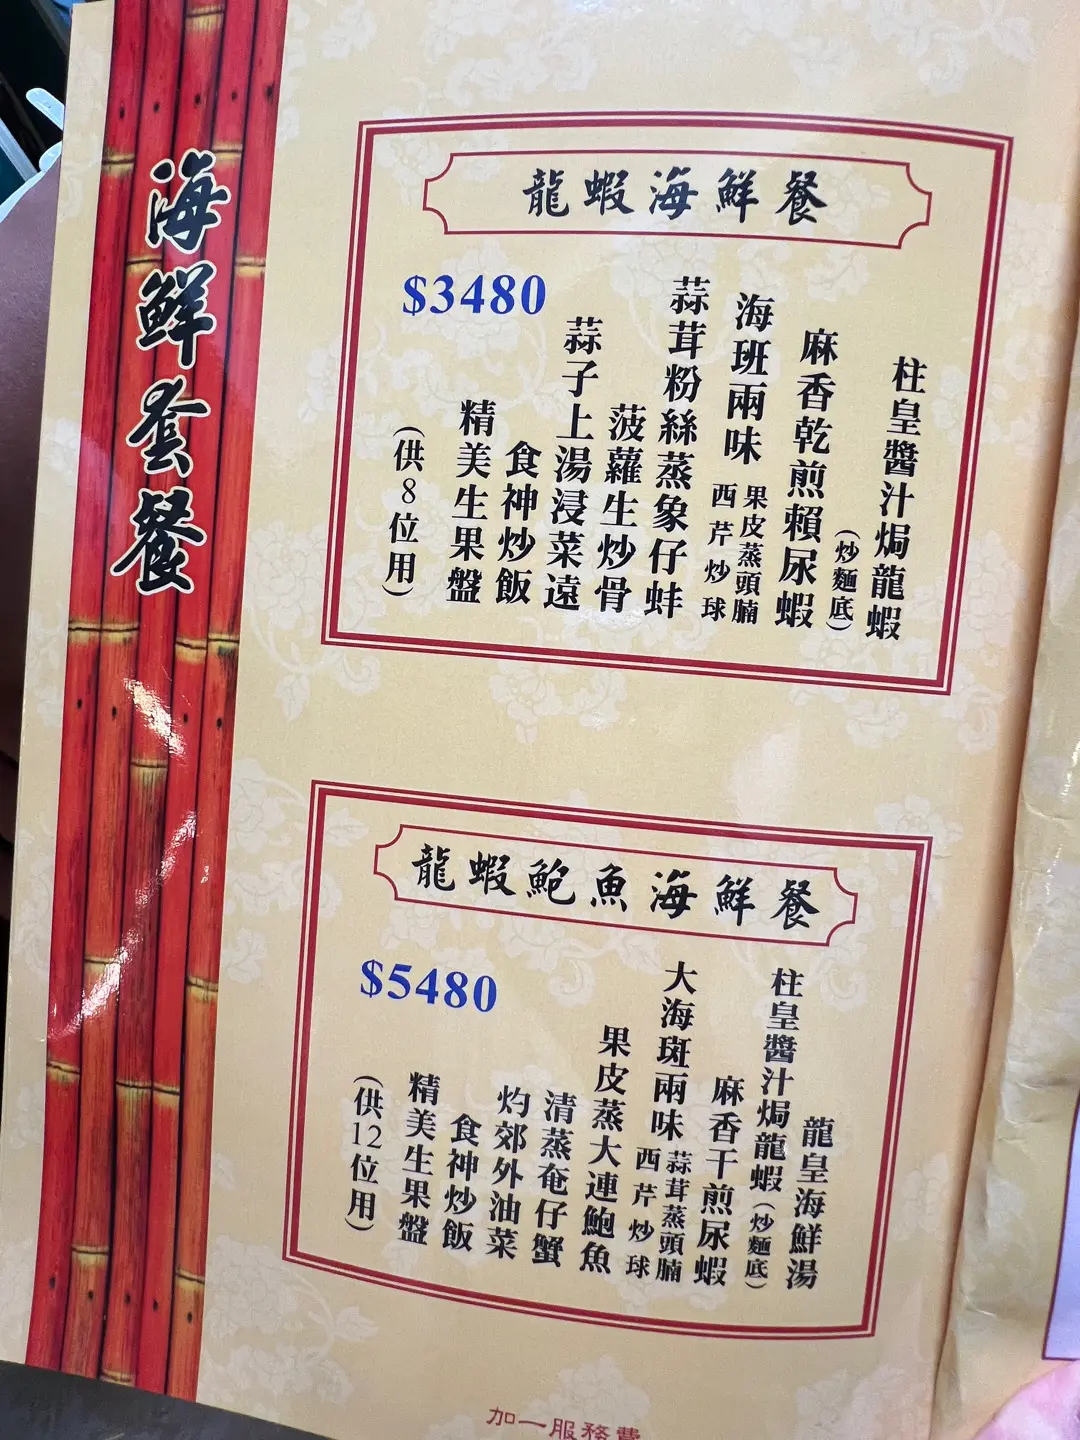 海鮮套餐
龍蝦海鮮餐
$3480
柱皇醬汁焗龍蝦
(炒麵底)
麻香乾煎賴尿蝦
海班兩味
果皮蒸頭腩
西芹炒球
蒜茸粉絲蒸象仔蚌
菠蘿生炒骨
蒜子上湯浸菜遠
食神炒飯
精美生果盤
(供8位用)
龍蝦鮑魚海鮮餐
$5480
龍皇海鮮湯
柱皇醬汁焗龍蝦(炒麵底)
麻香干煎尿蝦
大海斑兩味
蒜茸蒸頭腩
西芹炒球
果皮蒸大連鮑魚
清蒸奄仔蟹
灼郊外油菜
食神炒飯
精美生果盤
(供12位用)
加一服務費